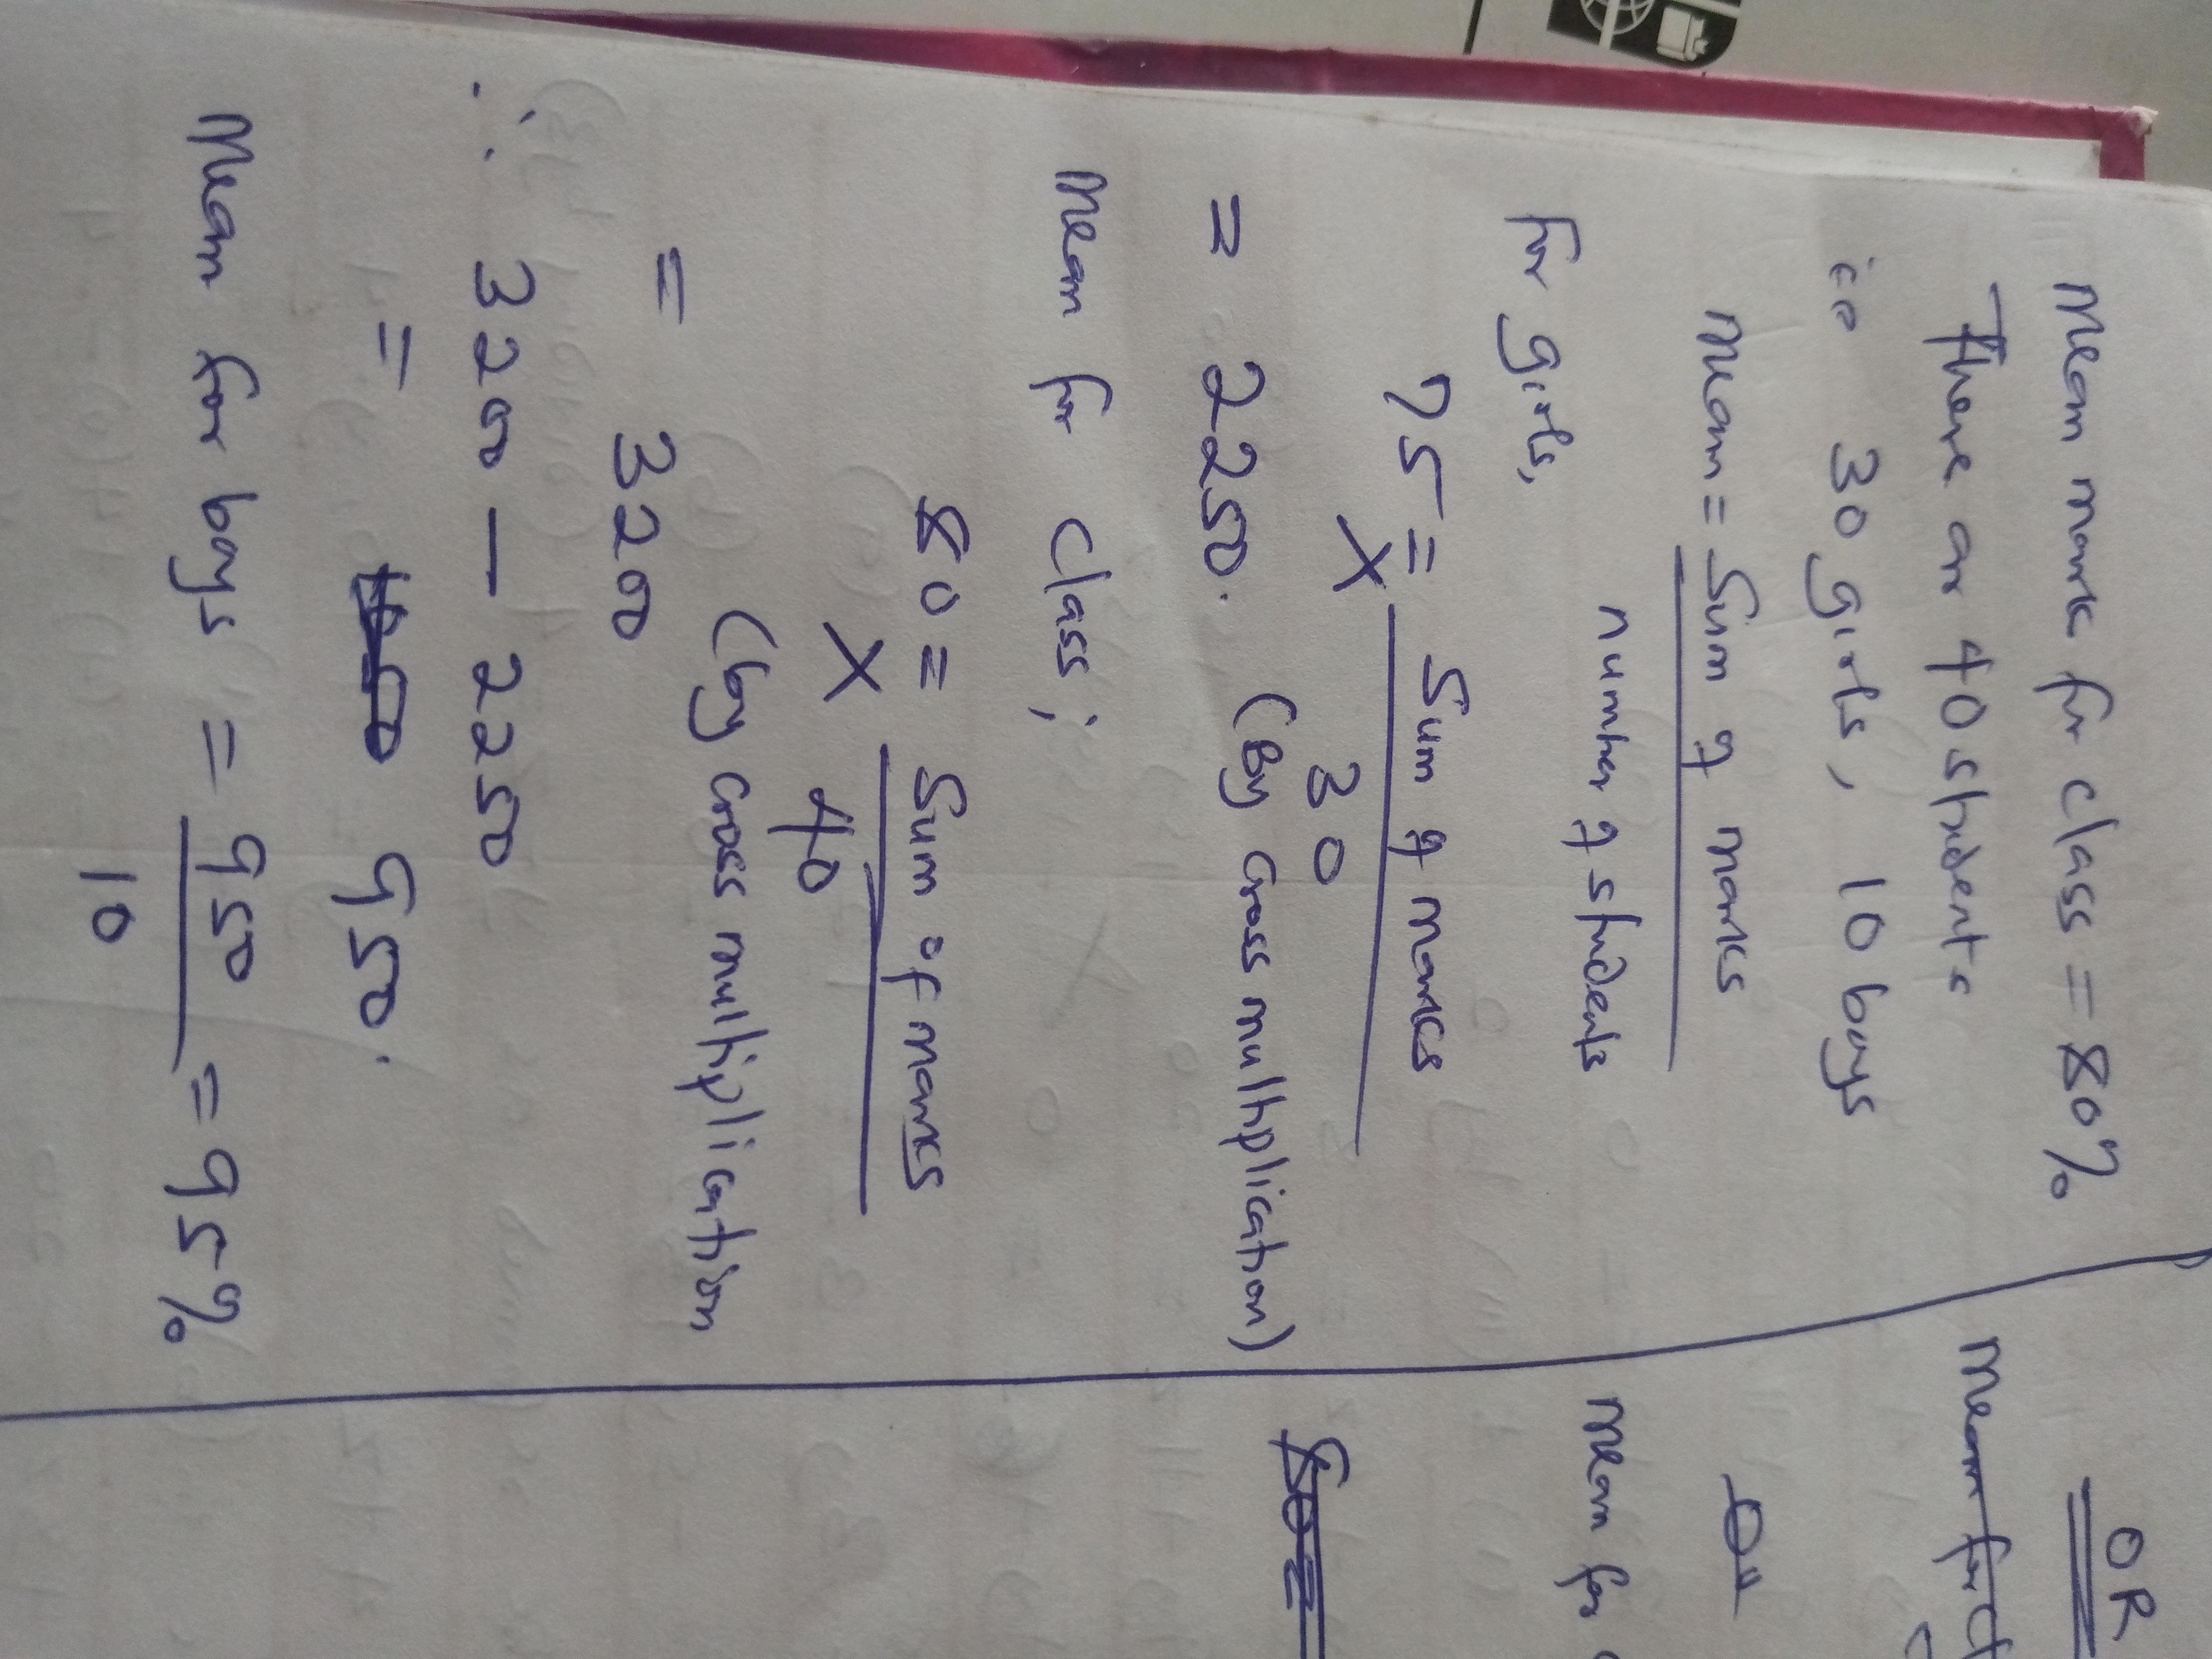 Mean mark for class = 80%
There are 40 students
ie 30 girls, 10 boys
Mean = Sum of marks
number of students
for girls,
75 = Sum of marks
X 30
= 2250. (By cross multiplication)
Mean for class;
80 = Sum of marks
X 40
(by cross multiplication
= 3200
∴ 3200 - 2250
= 950.
Mean for boys = 950 = 95%
10
OR
Mean for cl
Mean for
80 =